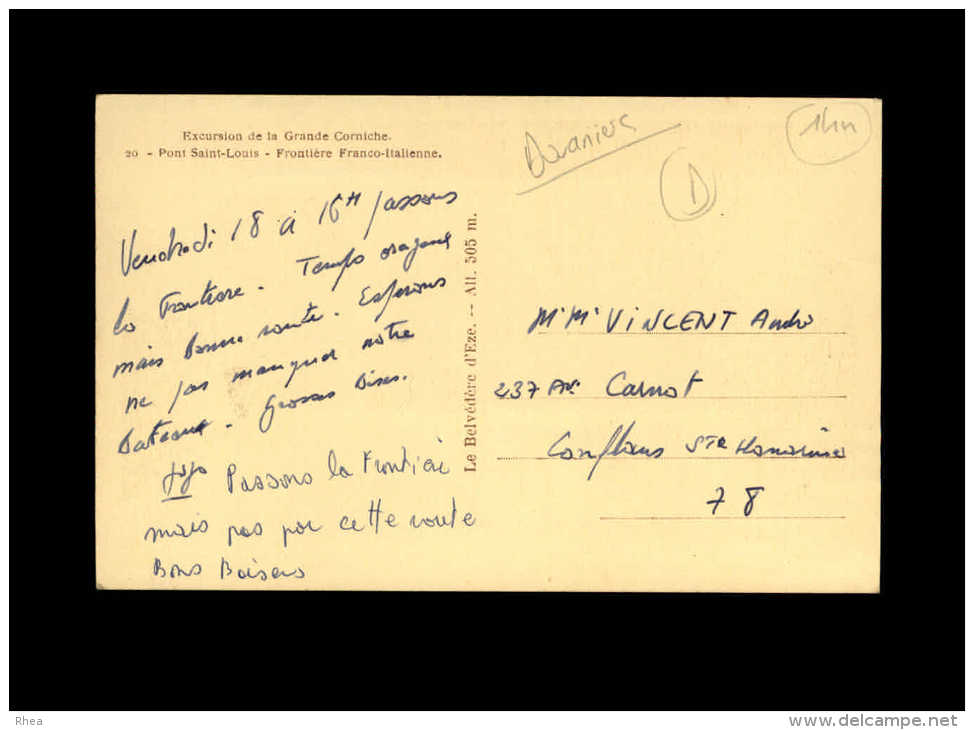 Excursion de la Grande Corniche.
20 - Pont Saint-Louis - Frontière Franco-Italienne.
Vendredi 18 à 16H passons
la Frontière. Temps orageux
mais Bonne route. Espérons
ne pas manquer notre
Bateau. Grosses Bises.
Jojo
Passons la Frontière
mais pas par cette route
Bons Baisers
Le Belvédère d'Eze. -- Alt. 505 m.
D
Mr Me VINCENT André
237 Av. Carnot
Conflans Ste Honorine
78
Rhea
www.delcampe.net